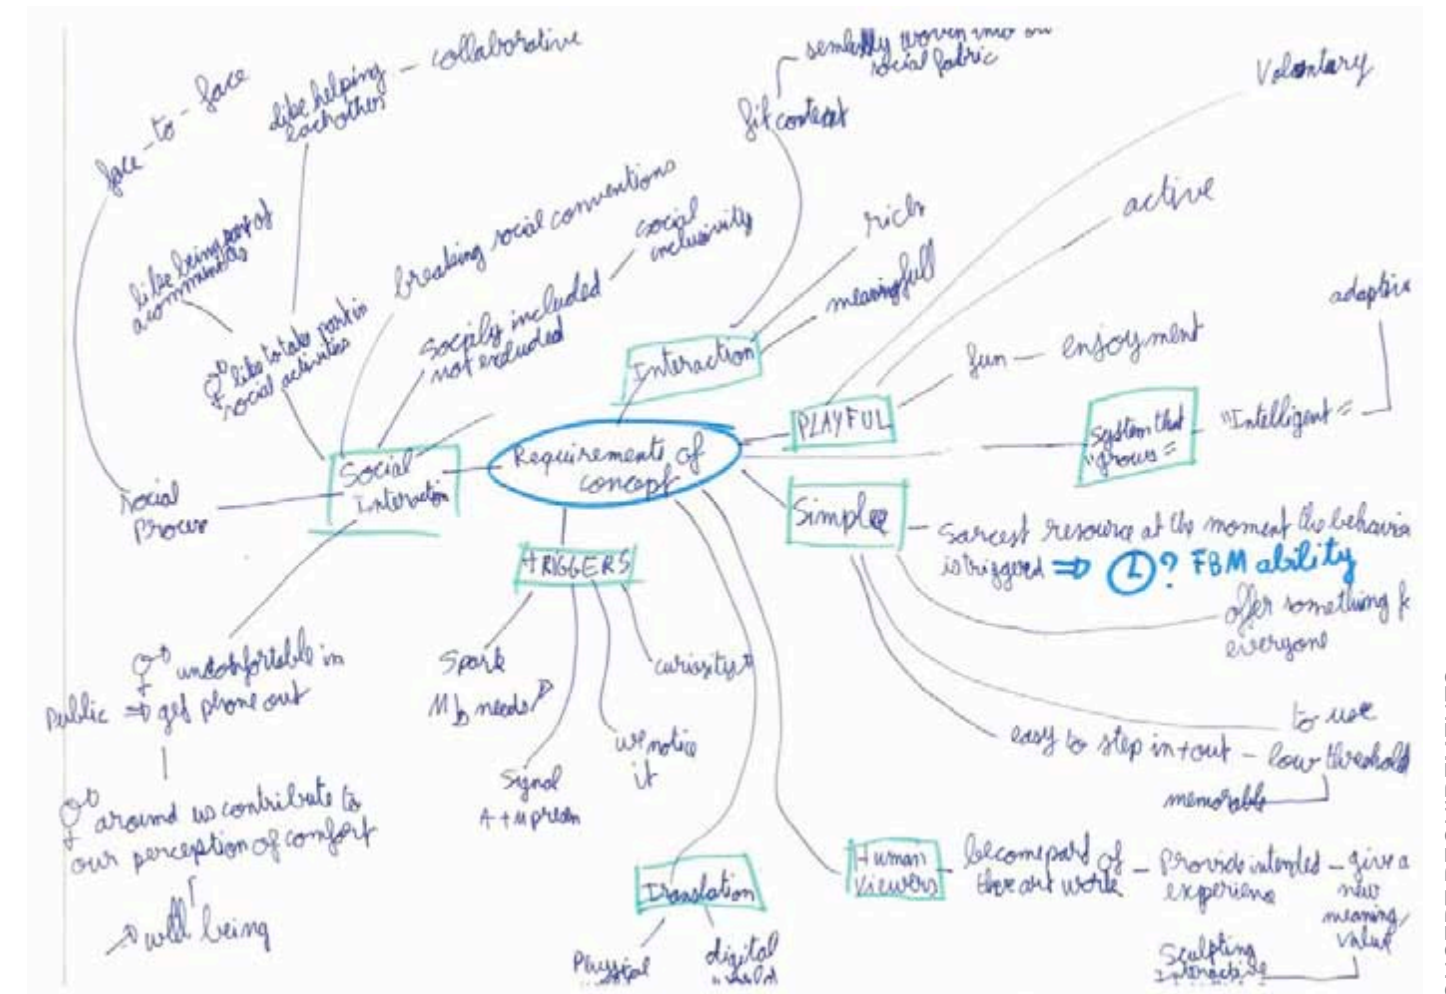 face-to-face
like helping
eachothers
collaborative
like being part of
a communities
like to take part in
social activities
breaking social conventions
Socially included
not excluded
social
inclusivity
Social
Process
Social
Interaction
uncomfortable in
Public ⇒ get phone out
around us contribute to
our perception of comfort
well being
Requirements of
concept
Interaction
fit context
woven into
social fabric
rich
meaningfull
PLAYFUL
Voluntary
active
fun — enjoyment
System that
"Grows"
"Intelligent"
Simple
Sarcest resource at the moment the behavior
is triggered ⇒ ? FBM ability
offer something
everyone
to use
easy to step in + out – low threshold
memorable
TRIGGERS
Spark
needs
Signal
we notice
it
curiosity
Translation
Physical
digital
Human
Viewers
become part of
the art work
Provide intended
experience
give a
new
meaning/
value
Sculpting
Interactive